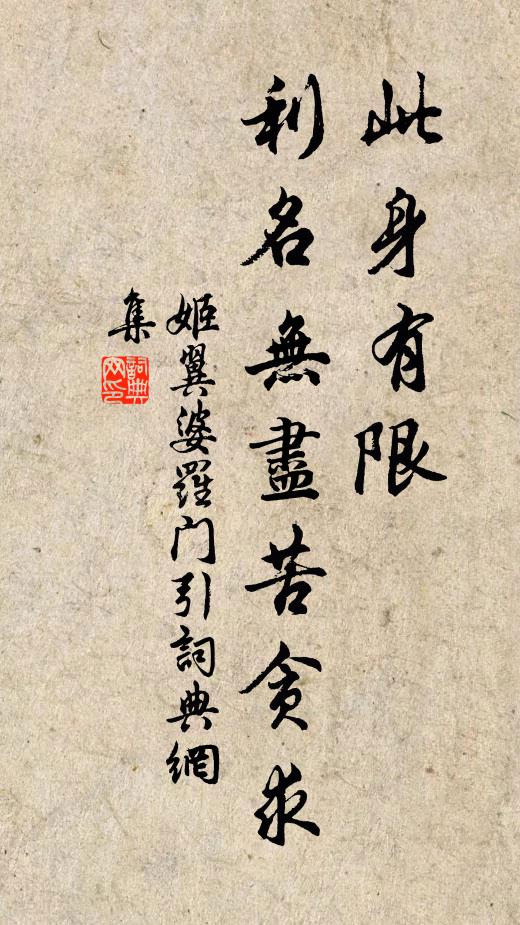 此身有限
利名無盡苦貪求
姬翼婆羅门引詞典網
集
詞典
网印